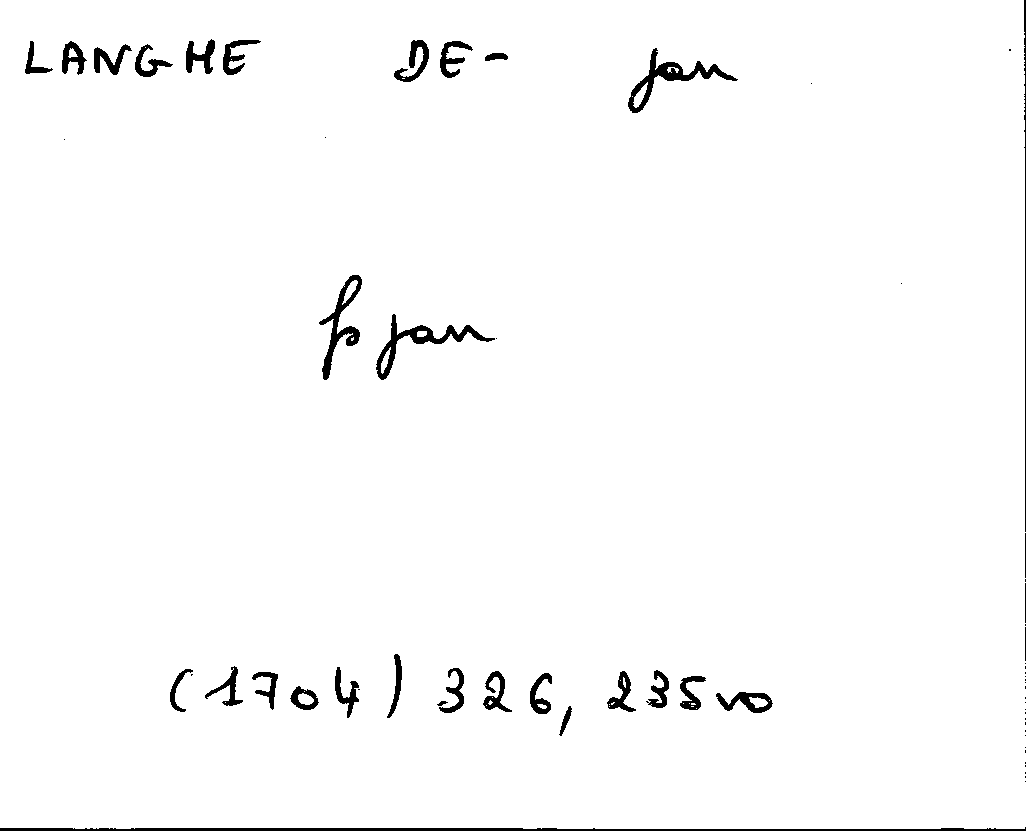 LANGHE DE- Jan
fs Jan
(1704) 326, 235vo